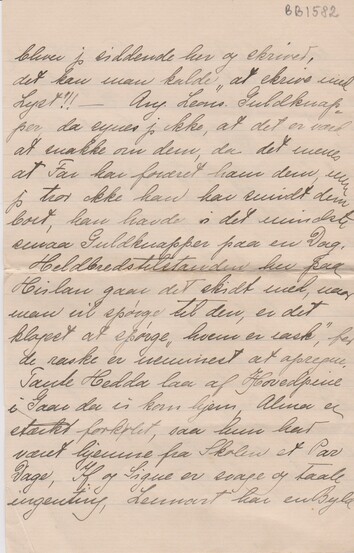 BB1582
bliver jeg siddende her og skriver,
det kan man kalde "at skrive med
Lyst"!! — Ang. Leons. Guldknap-
per, da synes jeg ikke, at det er værd
at snakke om dem, da det menes
at Far har foræret ham dem, men
jeg tror ikke han har smidt dem
bort, han havde i det mindste
smaa Guldknapper paa en Dag.
Helbredstilstanden her paa
Hislan gaar det skidt med, naar
man vil spørge til den, er det
klogest at spørge "hvem er rask", for
de raske er nemmest at opregne.
Tante Hedda laa af Hovedpine
i Gaar da vi kom hjem, Alma er
stærkt forkølet, saa hun har
været hjemme fra Skolen et Par
Dage, og Signe er svage og taale
ingenting, Lennart har en Byld